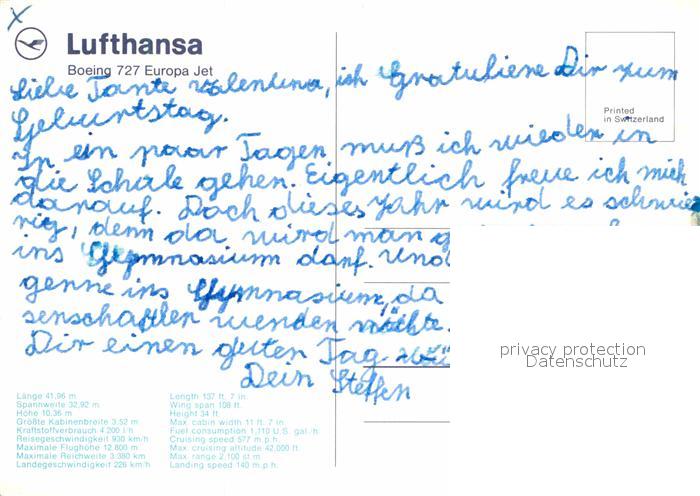 x
Lufthansa
Boeing 727 Europa Jet
Printed
in Switzerland
Liebe Tante Valentina, ich Gratuliere Dir zum
Geburtstag.
In ein paar Tagen muß ich wieder in
die Schule gehen. Eigentlich freue ich mich
darauf. Doch dieses Jahr wird es schwie
rig, denn da wird man g
ins Gymnasium darf. Und
gerne ins Gymnasium, da
senschaftler werden möchte.
Dir einen guten Tag wü
Dein Steffen
privacy protection
Datenschutz
Länge 41,96 m
Spannweite 32,92 m
Höhe 10,36 m
Größte Kabinenbreite 3,52 m
Kraftstoffverbrauch 4 200 l/h
Reisegeschwindigkeit 930 km/h
Maximale Flughöhe 12.800 m
Maximale Reichweite 3.380 km
Landegeschwindigkeit 226 km/h
Length 137 ft. 7 in.
Wing span 108 ft.
Height 34 ft.
Max. cabin width 11 ft. 7 in.
Fuel consumption 1,110 U.S. gal./h
Cruising speed 577 m.p.h.
Max. cruising altitude 42,000 ft.
Max. range 2,100 st.m.
Landing speed 140 m.p.h.